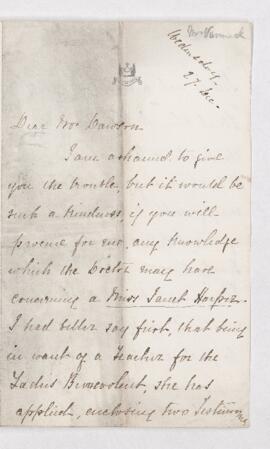 Wednesday
27 Dec.
Dear Mr Dawson
I am ashamed to give
you the trouble, but it would be
such a kindness, if you will
procure for me, any knowledge
which the Doctor may have
concerning a Miss Janet Harper.
I had better say first, that being
in want of a Teacher for the
Ladies Benevolent, she has
applied, enclosing two Testimonials